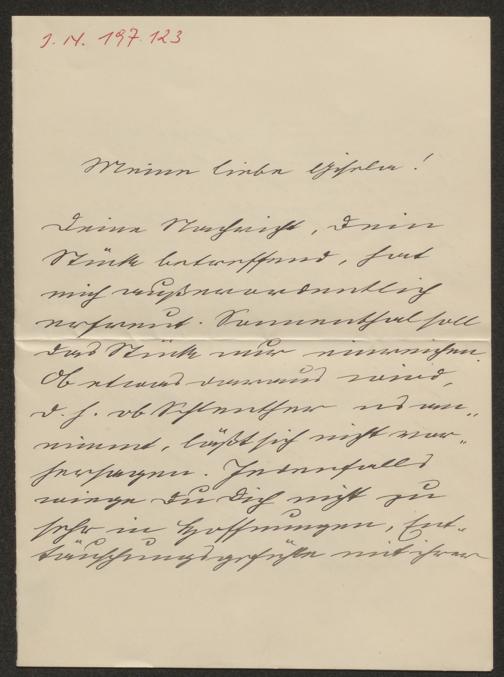 J. N. 197.123
Meine liebe Gisela!
Deine Nachricht, Dein
Stück betreffend, hat
mich außerordentlich
erfreut. Sonnenthal soll
das Stück nur einreichen.
Ob etwas daraus wird,
d. h. ob Schlenther es an-
nimmt, läßt sich nicht vor-
hersagen. Jedenfalls
wiege Du Dich nicht zu
sehr in Hoffnungen, Ent-
täuschungsgefühle mit ihrer